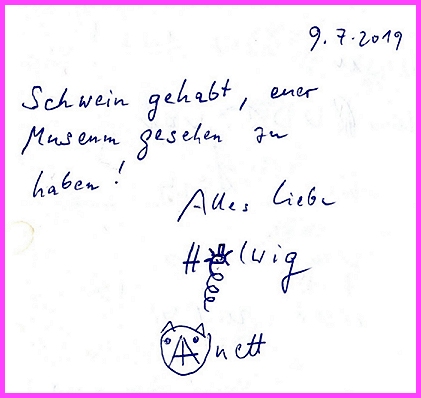 9.7.2019
Schwein gehabt, euer
Museum gesehen zu
haben!
Alles Liebe
Anett